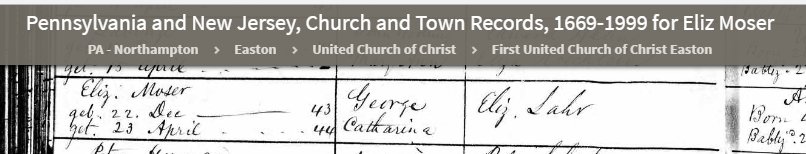 Pennsylvania and New Jersey, Church and Town Records, 1669-1999 for Eliz Moser
PA - Northampton > Easton > United Church of Christ > First United Church of Christ Easton
get. 15 April
Eliz. Moser
geb. 22. Dec 43
get. 23 April 44
George
Catharina
Eliz. Lahr
Born
Babtiz.